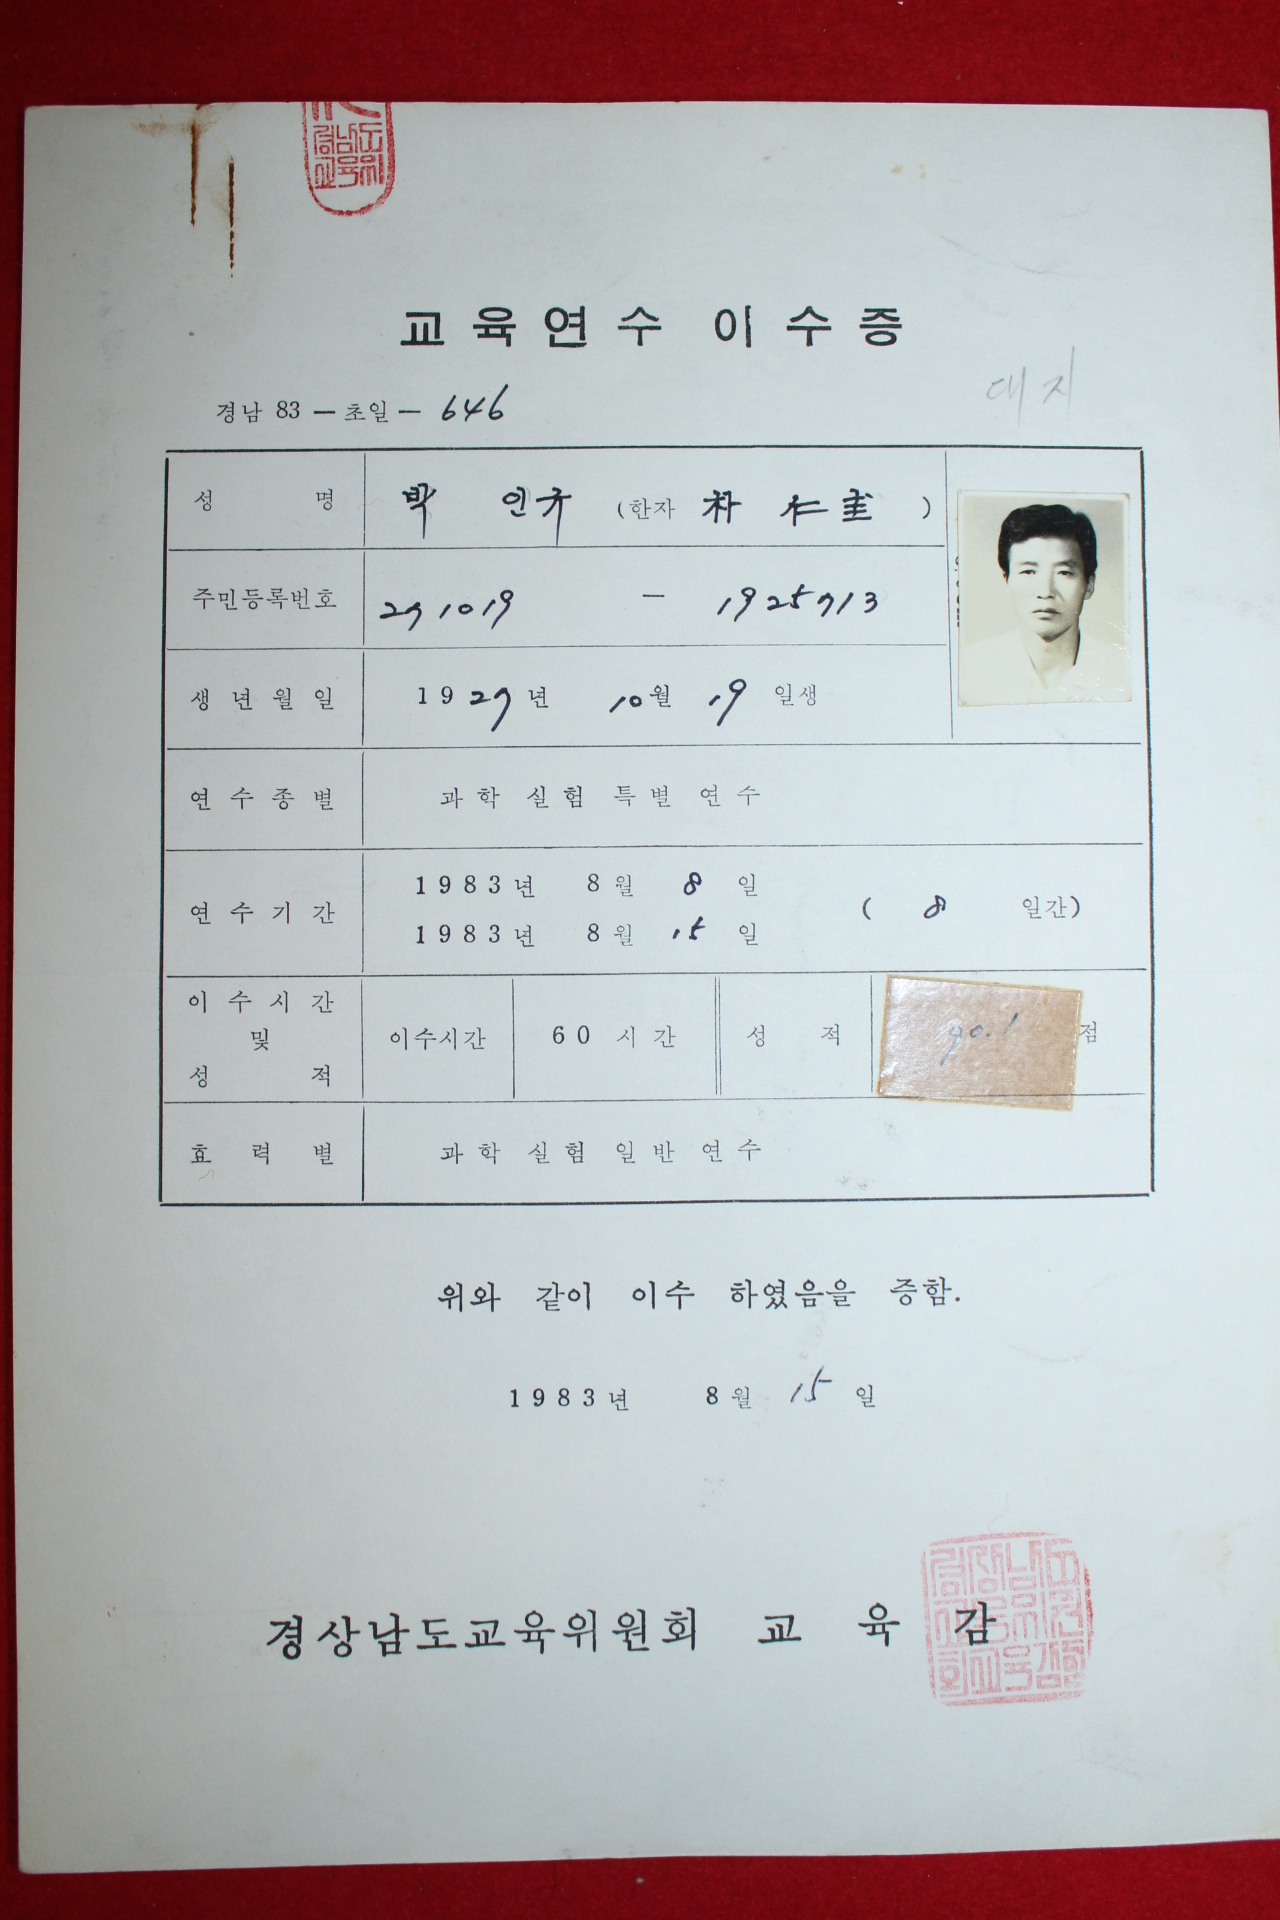 교육연수 이수증
대지
경남 83 — 초일 — 646
성 명 박 인규 (한자 朴 仁圭 )
주민등록번호 271019 — 1925713
생년월일 1927년 10월 19일생
연수종별 과학실험특별연수
연수기간 1983년 8월 8일
1983년 8월 15일 ( 8 일간)
이수시간 및 성적 이수시간 60시간 성적 90.1 점
효력별 과학실험일반연수
위와 같이 이수 하였음을 증함.
1983년 8월 15일
경상남도교육위원회 교육감